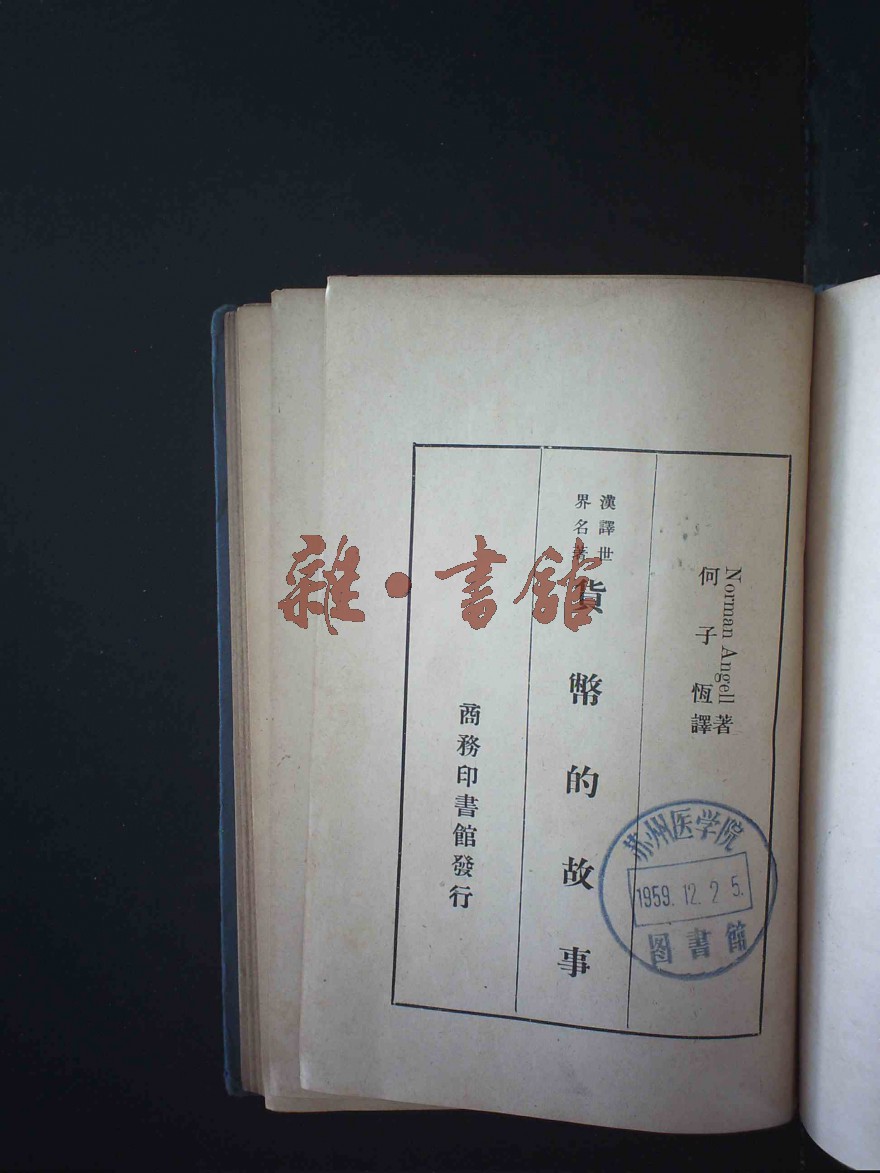 Norman Angell 著
何子恆譯
漢譯世
界名著
貨幣的故事
商務印書館發行
苏州医学院
1959.12.25.
图書館
雜·書館